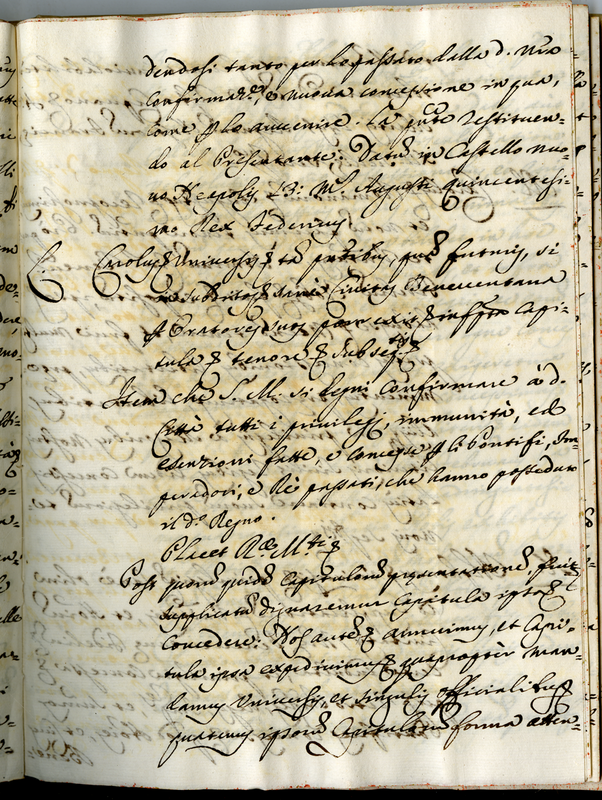 dendosi tanto per lo passato dalla d. nra
conferma, e nuova concessione in qua,
come p lo avvenire. La pnte restituen-
do al Presentante. Datũ in Castello nuo-
vo Neapolis 23: M. Augusti quincentesi-
mo Rex Federicus
Carolus Universis tã pntibus, quã futuris, si
Civitas Beneventana
p Oratores suos infrtta Capi-
tula tenore subseq.
Item che S. M. si degni confirmare à d.
Città tutti i privilegj, immunità, ed
esenzioni fatte, e concesse p li Pontifi, Im-
peradori, e Rè passati, che hanno posseduto
il d.º Regno.
Placet Rae M.tis
Post quorũ quidẽ Capitulorũ presentationẽ, fuit
supplicatũ dignaremur Capitula ipsa
Concedere. Nos autẽ annuimus, et Capi-
tula ipsa expedivimus quapropter man-
damus Universis, et singulis officialibus
quatenus ipsorũ Capitulorũ forma atten-